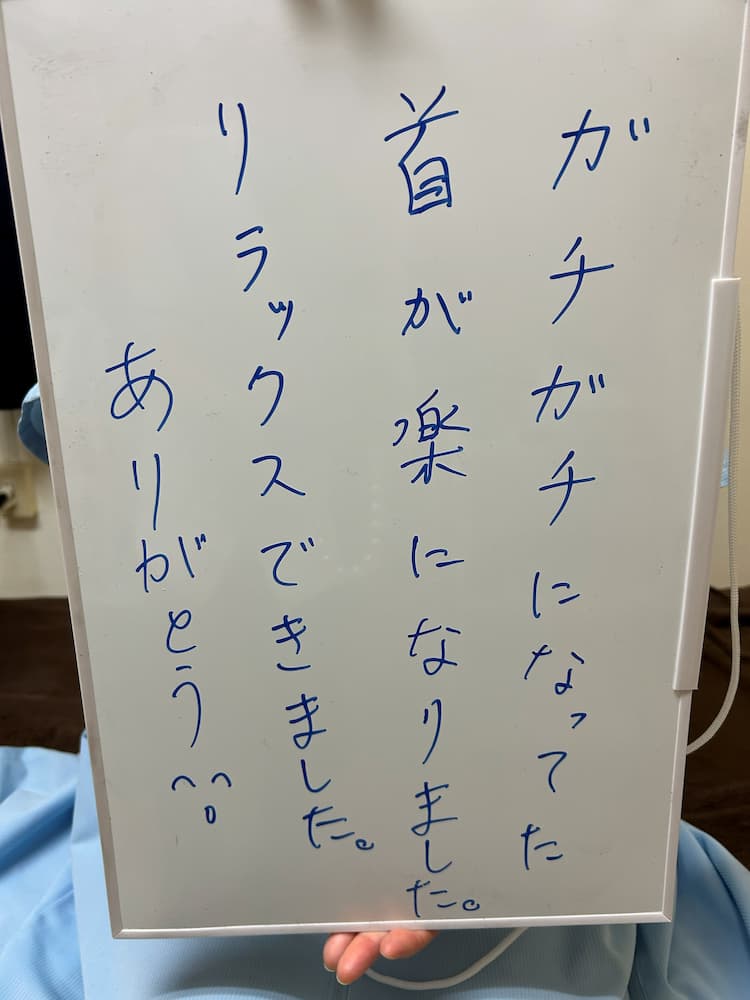 ガチガチになってた
首が楽になりました。
リラックスできました。
ありがとう